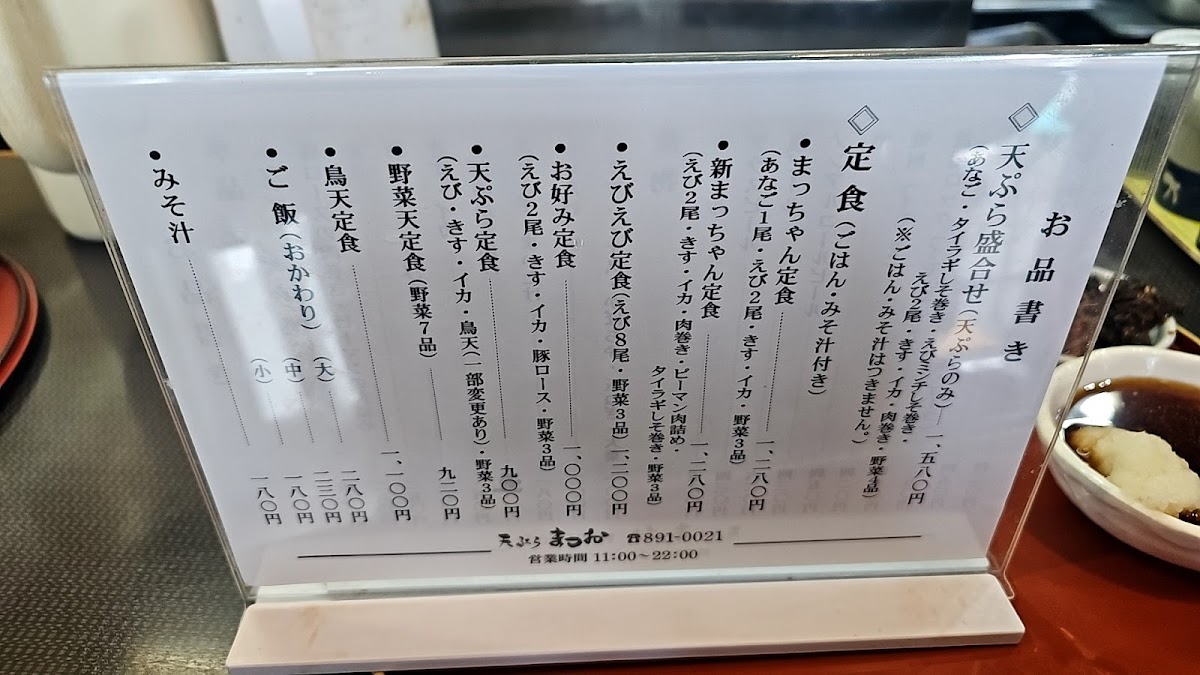 お品書き
◇天ぷら盛合せ(天ぷらのみ) 一、五八〇円
(あなご・タイラギしそ巻き・えびミンチしそ巻き・
えび2尾・きす・イカ・肉巻き・野菜4品)
(※ごはん・みそ汁はつきません。)
◇定食(ごはん・みそ汁付き)
●まっちゃん定食 一、二八〇円
(あなご1尾・えび2尾・きす・イカ・野菜3品)
●新まっちゃん定食 一、二八〇円
(えび2尾・きす・イカ・肉巻き・ピーマン肉詰め・
タイラギしそ巻き・野菜3品)
●えびえび定食(えび8尾・野菜3品) 一、二〇〇円
●お好み定食 一、〇〇〇円
(えび2尾・きす・イカ・豚ロース・野菜3品)
●天ぷら定食 九〇〇円
(えび・きす・イカ・鳥天(一部変更あり)・野菜3品)
●野菜天定食(野菜7品) 九二〇円
●鳥天定食 一、一〇〇円
●ご飯(おかわり) (大) 二八〇円
(中) 二三〇円
(小) 一八〇円
●みそ汁 一八〇円
天ぷら まつお ☎891-0021
営業時間 11:00~22:00